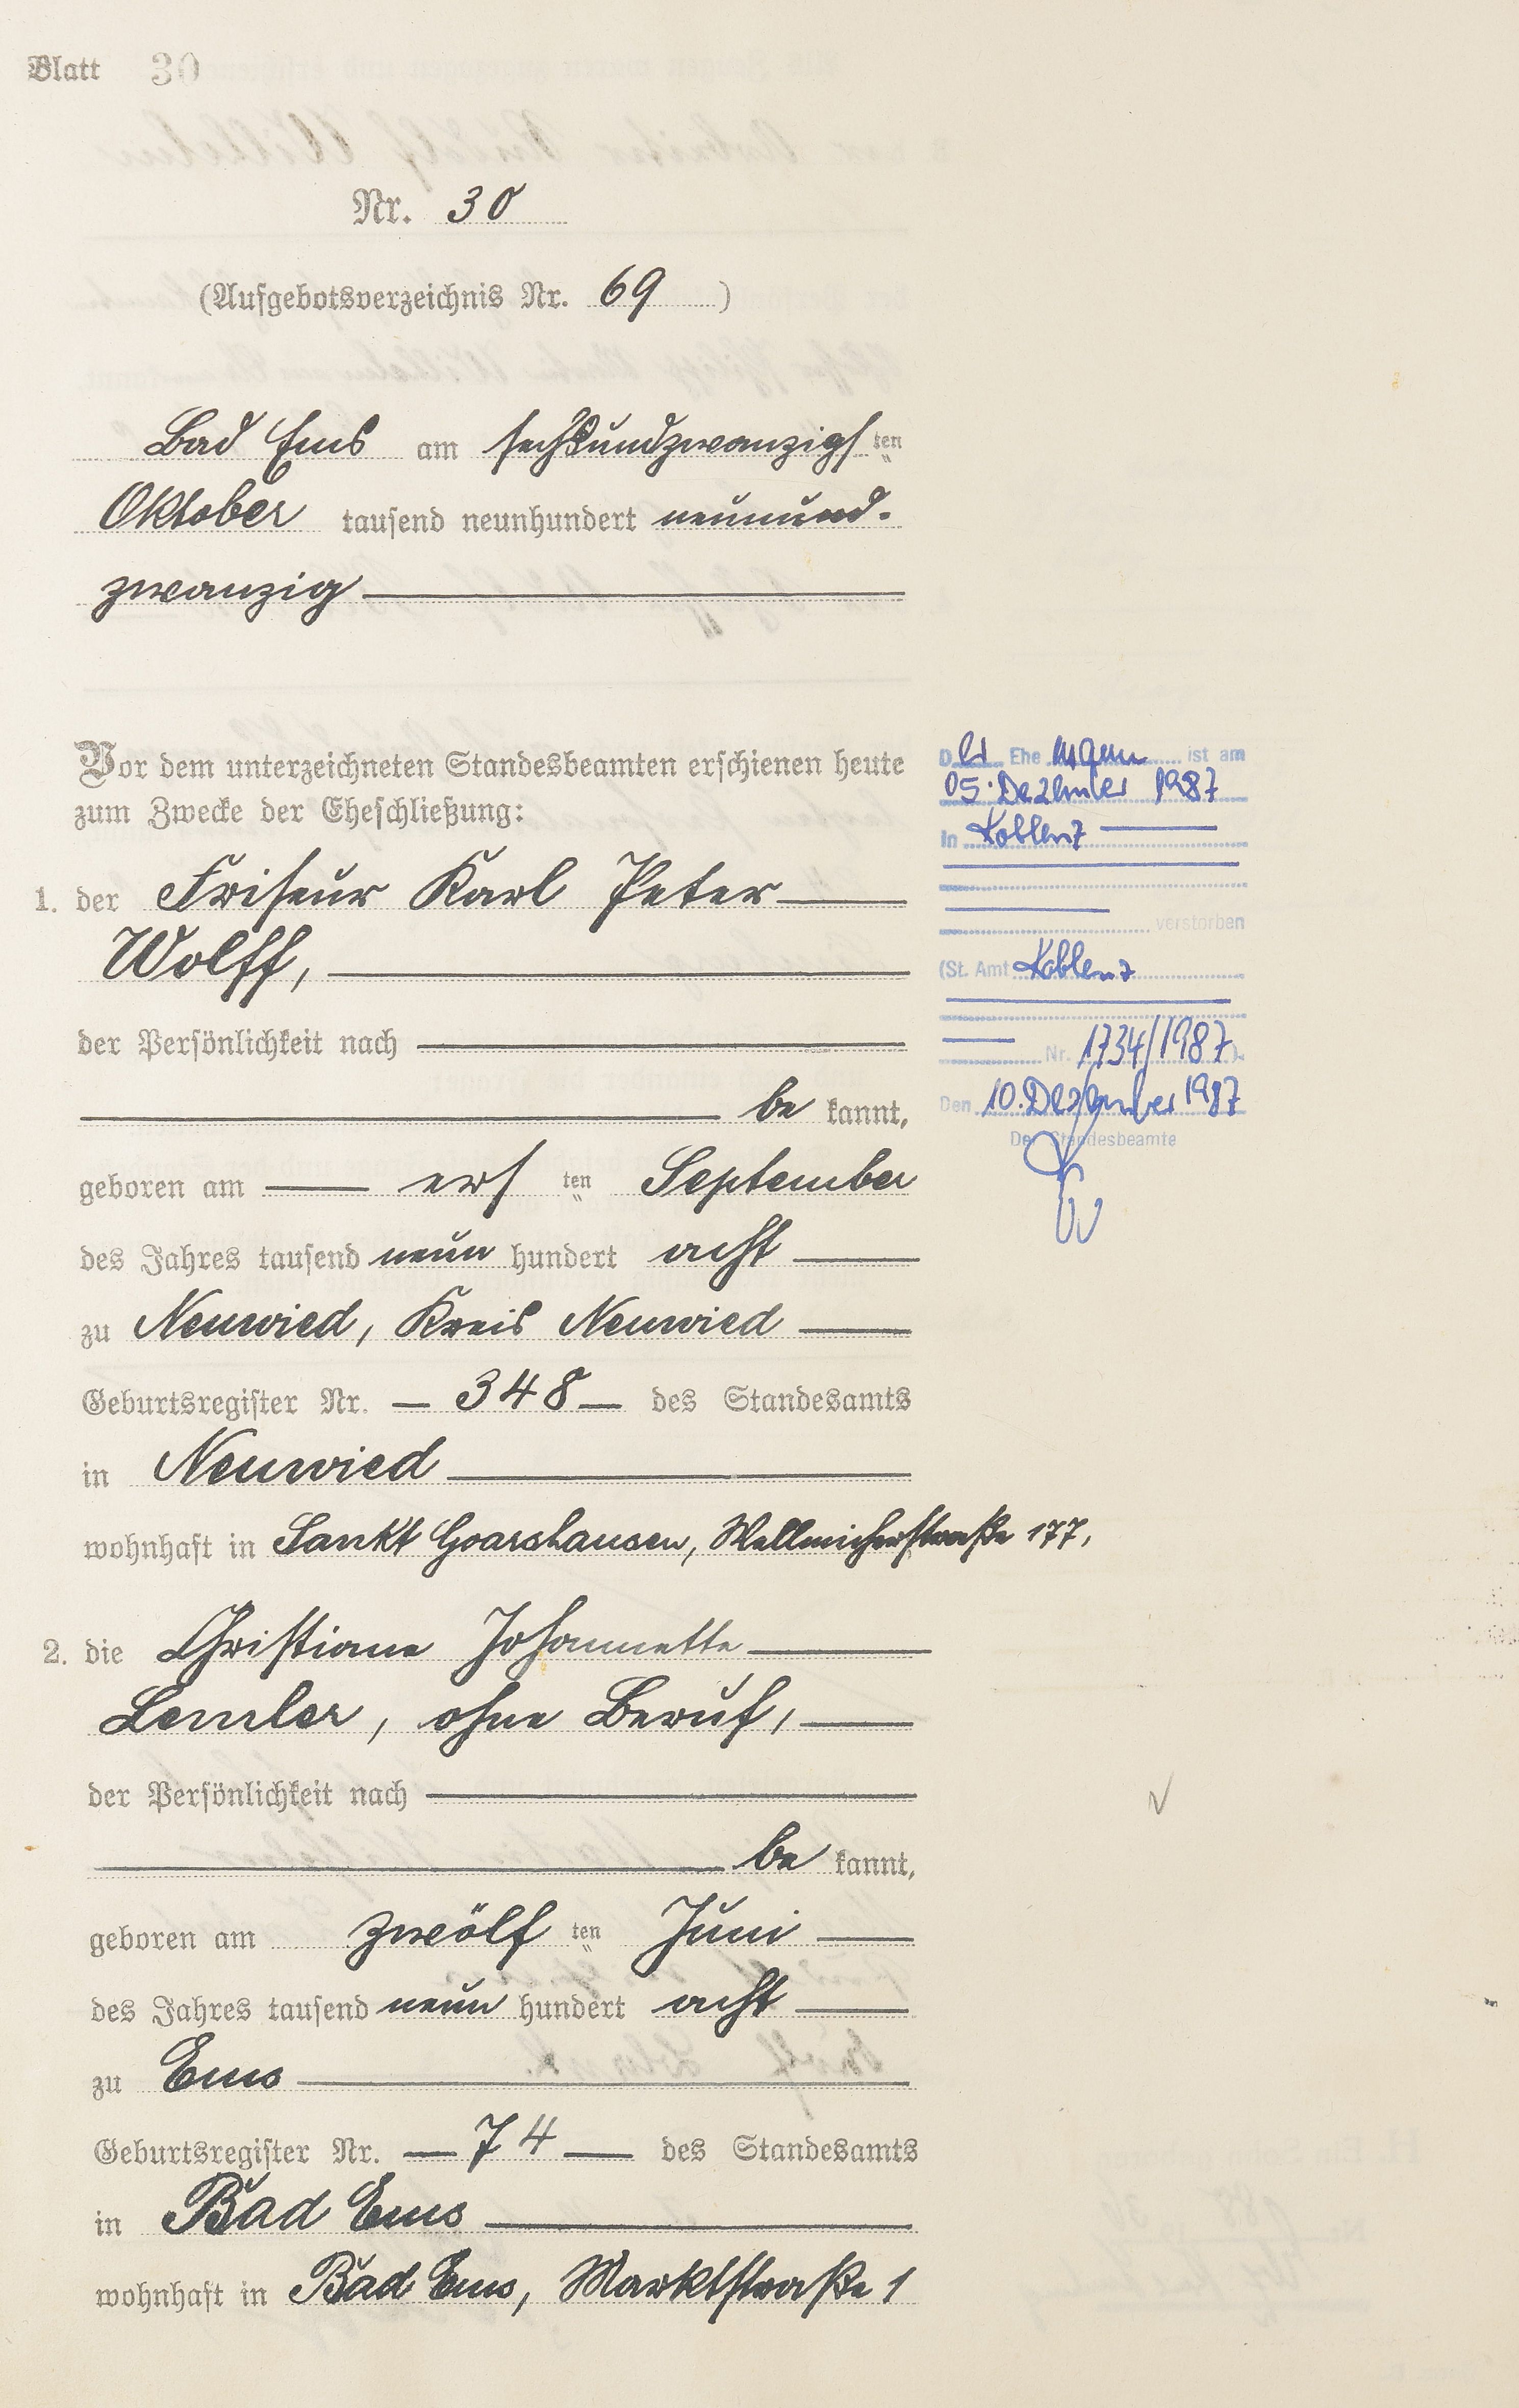 Blatt 30
Nr. 30
(Aufgebotsverzeichnis Nr. 69)
Bad Ems am sechsundzwanzigsten
Oktober tausend neunhundert neunund-
zwanzig
Vor dem unterzeichneten Standesbeamten erschienen heute
zum Zwecke der Eheschließung:
1. der Friseur Karl Peter
Wolff,
der Persönlichkeit nach
be kannt,
geboren am ersten September
des Jahres tausend neun hundert acht
zu Neuwied, Kreis Neuwied
Geburtsregister Nr. 348 des Standesamts
in Neuwied
wohnhaft in Sankt Goarshausen, Wellmicherstraße 177,
2. die Christiane Johannette
Lemler, ohne Beruf,
der Persönlichkeit nach
be kannt,
geboren am zwölf ten Juni
des Jahres tausend neun hundert acht
zu Ems
Geburtsregister Nr. 74 des Standesamts
in Bad Ems
wohnhaft in Bad Ems, Marktstraße 1
Der Ehemann ist am
05. Dezember 1987
in Koblenz
verstorben
(St. Amt Koblenz
Nr. 1734/1987).
Den 10. Dezember 1987
Der Standesbeamte